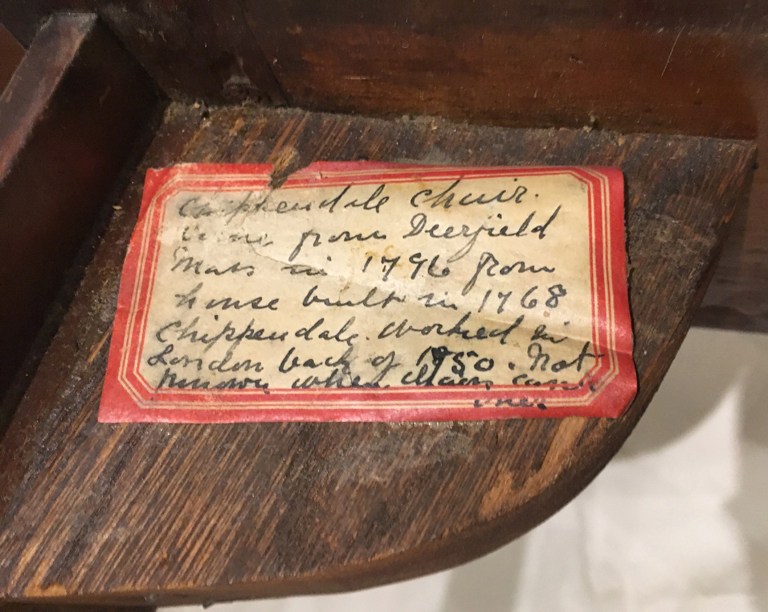 Chippendale chair.
Came from Deerfield
Mass in 1796 from
house built in 1768
Chippendale worked in
London back of 1750. Not
known when chair came
over